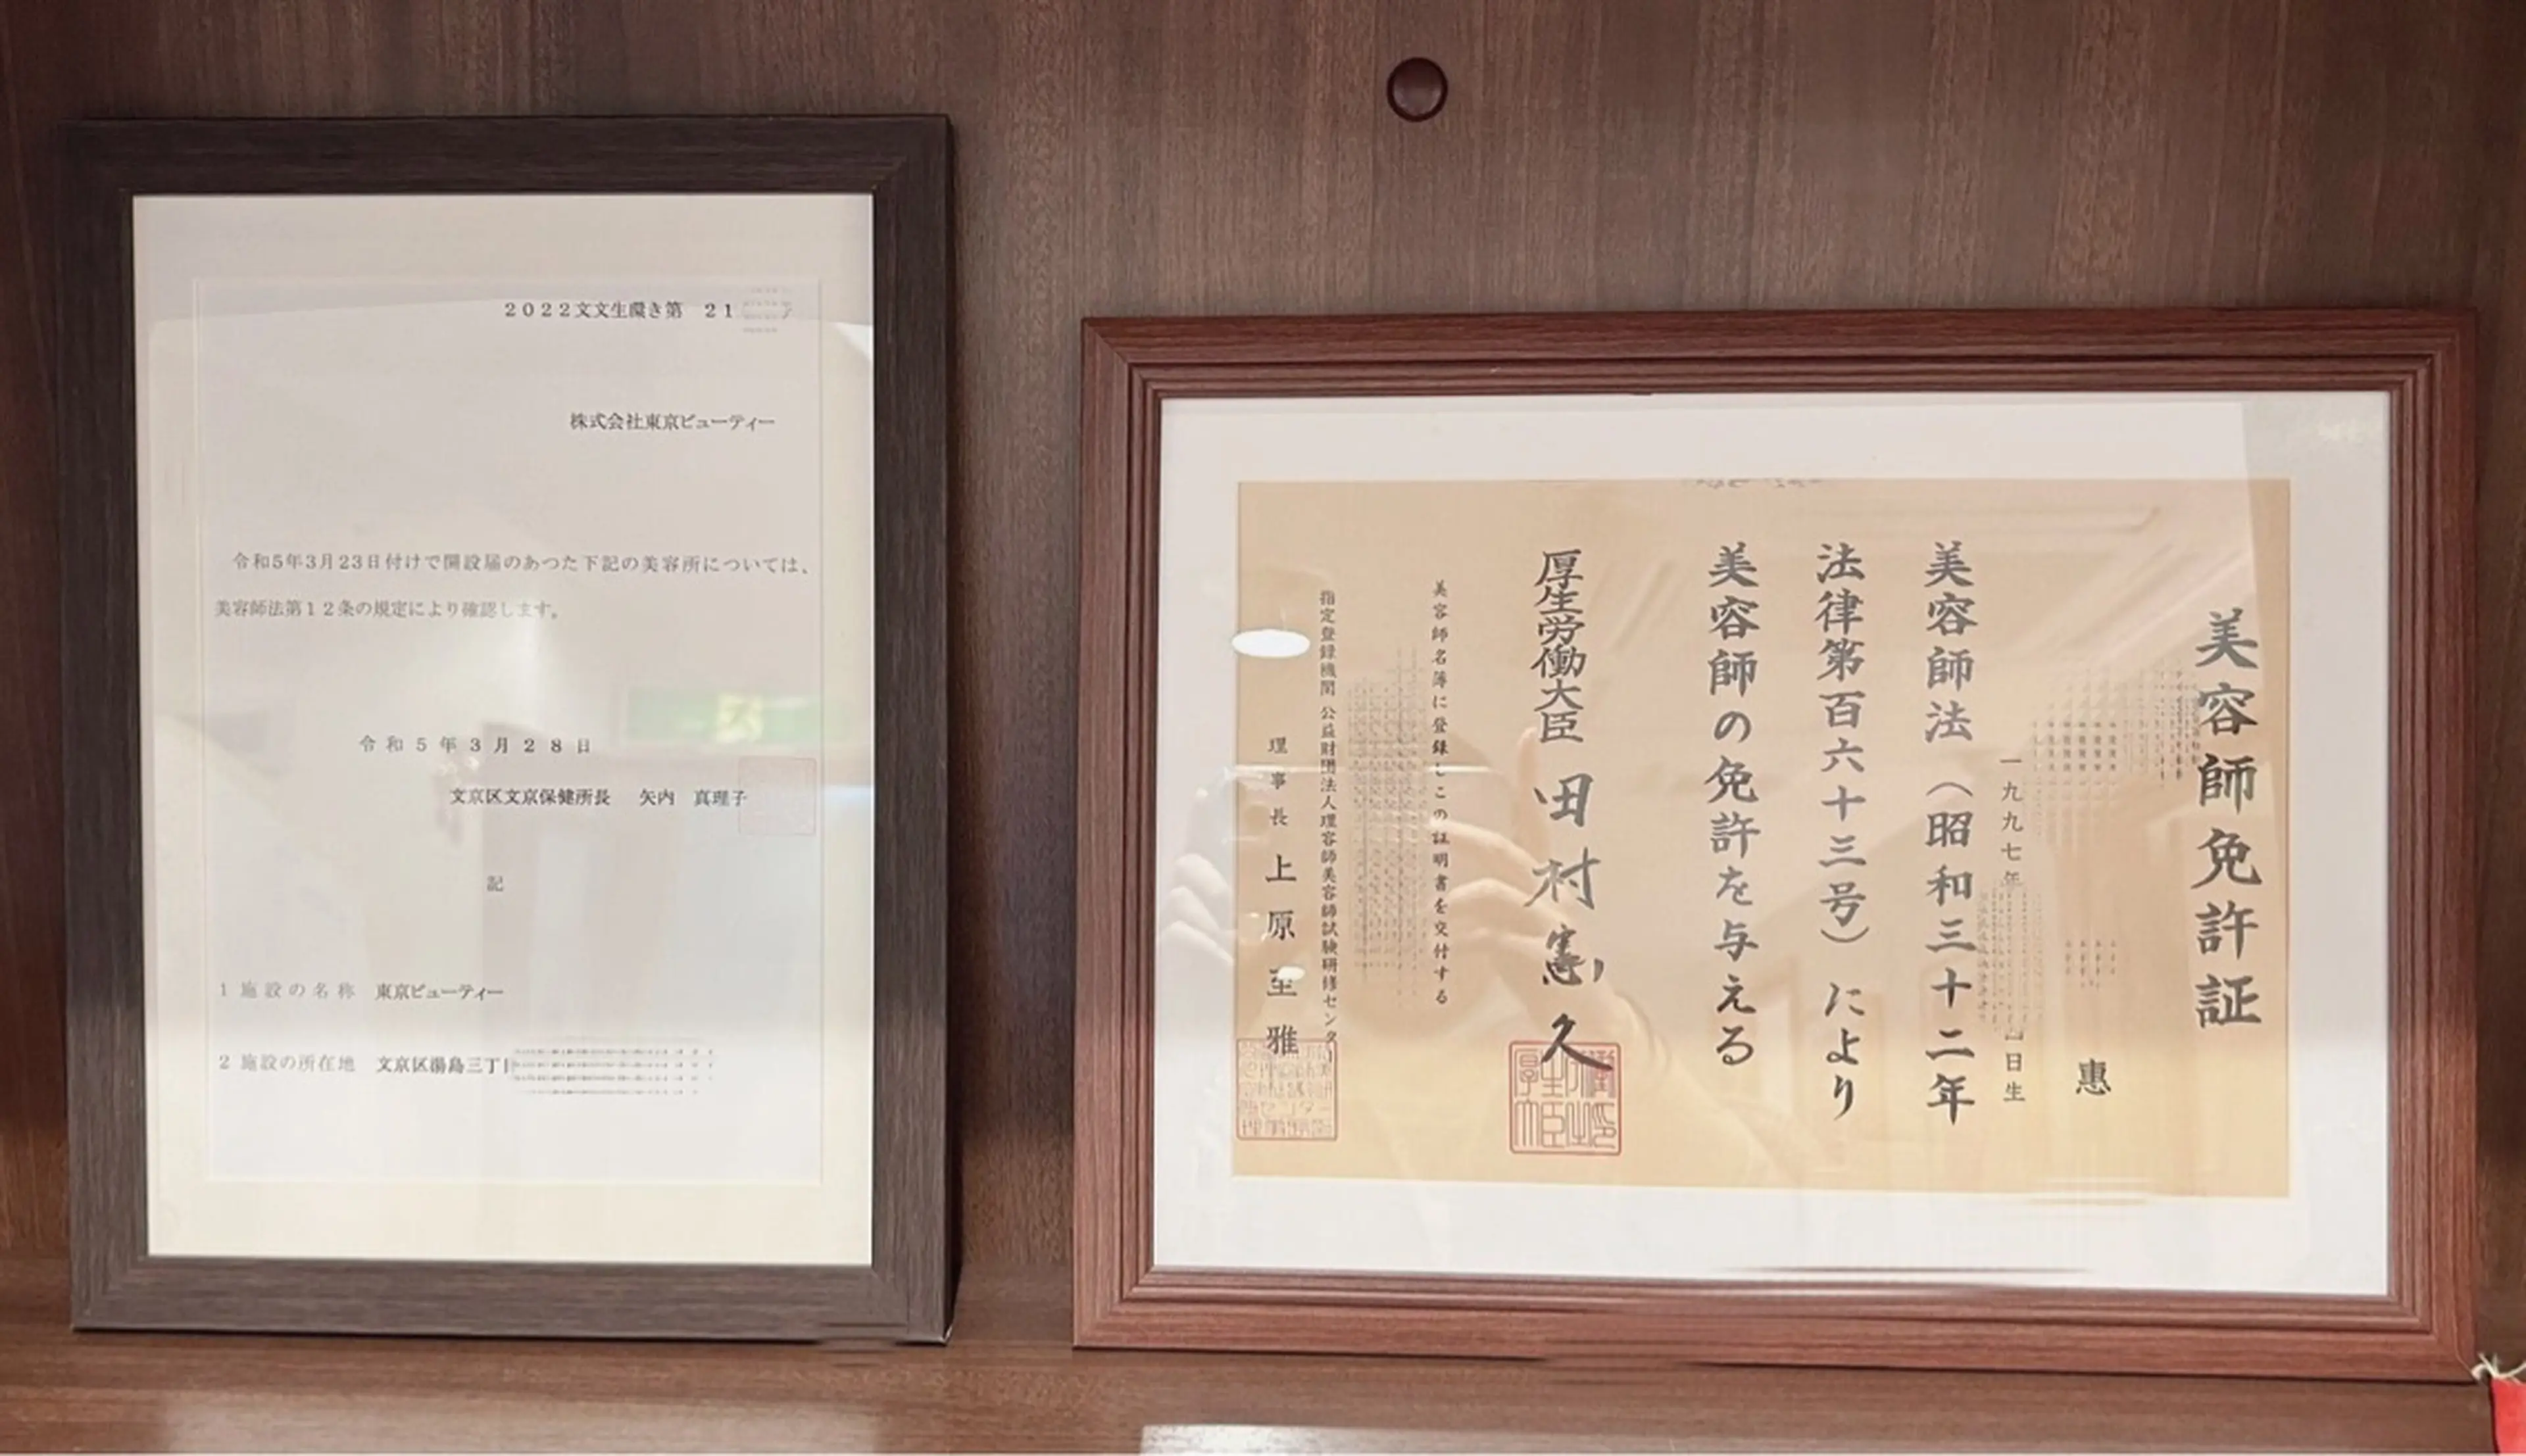 2022文文生環き第 21
株式会社東京ビューティー
令和5年3月23日付けで開設届のあつた下記の美容所については、
美容師法第12条の規定により確認します。
令和5年3月28日
文京区文京保健所長 矢内 真理子
記
1 施設の名称 東京ビューティー
2 施設の所在地 文京区湯島三丁
美容師免許証
惠
一九九七年
日生
美容師法（昭和三十二年
法律第百六十三号）により
美容師の免許を与える
厚生労働大臣 田村憲久
美容師名簿に登録しこの証明書を交付する
指定登録機関 公益財団法人理容師美容師試験研修センター
理事長 上原至雅